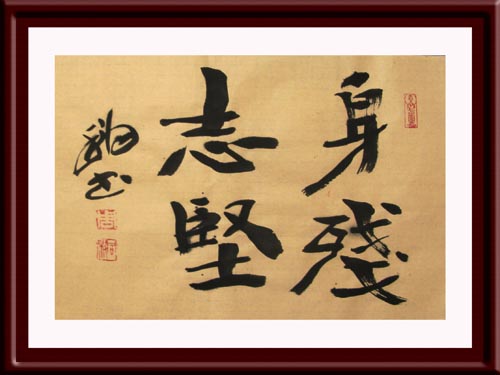 身殘
志堅